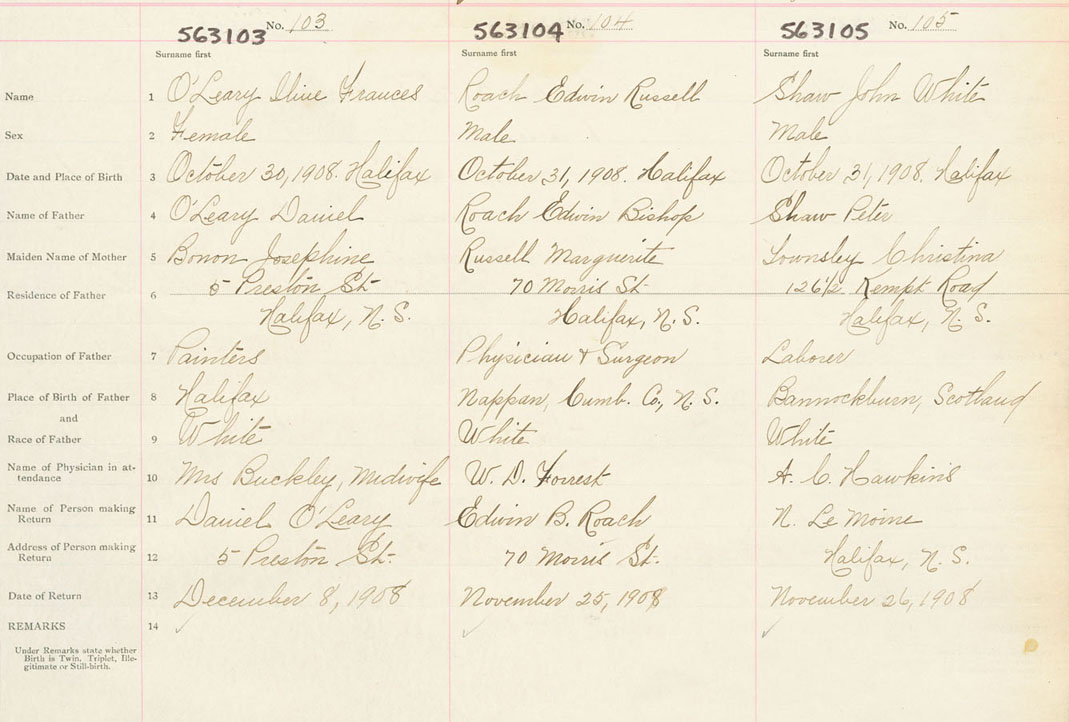 No. 103 No. 104 No. 105
563103 563104 563105
Surname first Surname first Surname first
Name 1 O'Leary Olive Frances Roach Edwin Russell Shaw John White
Sex 2 Female Male Male
Date and Place of Birth 3 October 30, 1908. Halifax October 31, 1908. Halifax October 31, 1908. Halifax
Name of Father 4 O'Leary Daniel Roach Edwin Bishop Shaw Peter
Maiden Name of Mother 5 Bonon Josephine Russell Marguerite Townsley Christina
5 Preston St. 70 Morris St. 126½ Kempt Road
Residence of Father 6
Halifax, N.S. Halifax, N.S. Halifax, N.S.
Occupation of Father 7 Painters Physician & Surgeon Laborer
Place of Birth of Father 8 Halifax Nappan, Cumb. Co., N.S. Bannockburn, Scotland
and
Race of Father 9 White White White
Name of Physician in at-
tendance 10 Mrs Buckley, Midwife W. D. Forrest A. C. Hawkins
Name of Person making
Return 11 Daniel O'Leary Edwin B. Roach N. Le Moine
Address of Person making
Return 12 5 Preston St. 70 Morris St. Halifax, N.S.
Date of Return 13 December 8, 1908 November 25, 1908 November 26, 1908
REMARKS 14
Under Remarks state whether
Birth is Twin. Triplet, Ille-
gitimate or Still-birth.